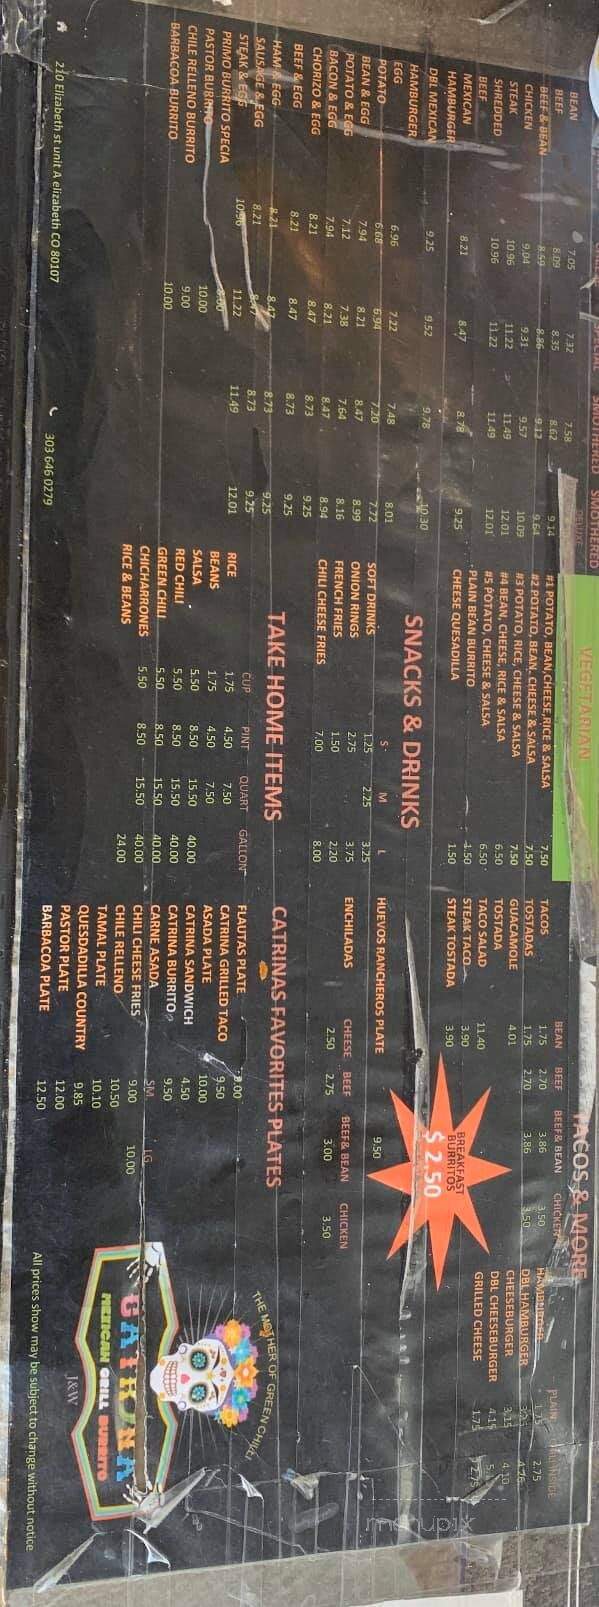 SPECIAL SMOTHERED SMOTHERED
DELUXE
BEAN 7.05 7.32 7.58
BEEF 8.09 8.35 8.62 9.14
BEEF & BEAN 8.59 8.86 9.12 9.64
CHICKEN 9.04 9.31 9.57 10.09
STEAK 10.96 11.22 11.49 12.01
SHREDDED BEEF 10.96 11.22 11.49 12.01
MEXICAN HAMBURGER 8.21 8.47 8.78 9.25
DBL MEXICAN HAMBURGER 9.25 9.52 9.78 10.30
EGG 6.96 7.22 7.48 8.01
POTATO 6.68 6.94 7.20 7.72
BEAN & EGG 7.94 8.21 8.47 8.99
POTATO & EGG 7.12 7.38 7.64 8.16
BACON & EGG 7.94 8.21 8.47 8.94
CHORIZO & EGG 8.21 8.47 8.73 9.25
BEEF & EGG 8.21 8.47 8.73 9.25
HAM & EGG 8.21 8.47 8.73 9.25
SAUSAGE & EGG 8.21 8.47 8.73 9.25
STEAK & EGG 10.96 11.22 11.49 12.01
PRIMO BURRITO SPECIA
PASTOR BURRITO 10.00
CHILE RELLENO BURRITO 9.00
BARBACOA BURRITO 10.00
210 Elizabeth st unit A elizabeth CO 80107
303 646 0279
VEGETARIAN
#1 POTATO, BEAN,CHEESE,RICE & SALSA 7.50
#2 POTATO, BEAN, CHEESE & SALSA 7.50
#3 POTATO, RICE, CHEESE & SALSA 7.50
#4 BEAN, CHEESE, RICE & SALSA 6.50
#5 POTATO, CHEESE & SALSA 6.50
PLAIN BEAN BURRITO 4.50
CHEESE QUESADILLA 1.50
SNACKS & DRINKS
S M L
SOFT DRINKS 1.25 2.25 3.25
ONION RINGS 2.75 3.75
FRENCH FRIES 1.50 2.20
CHILI CHEESE FRIES 7.00 8.00
TAKE HOME ITEMS
CUP PINT QUART GALLON
RICE 1.75 4.50 7.50
BEANS 1.75 4.50 7.50
SALSA 5.50 8.50 15.50 40.00
RED CHILI 5.50 8.50 15.50 40.00
GREEN CHILI 5.50 8.50 15.50 40.00
CHICHARRONES 5.50 8.50 15.50 40.00
RICE & BEANS 24.00
TACOS & MORE
BEAN BEEF BEEF& BEAN CHICKEN
TACOS 1.75 2.70 3.86 3.50
TOSTADAS 1.75 2.70 3.86 3.50
GUACAMOLE TOSTADA 4.01
TACO SALAD 11.40
STEAK TACO 3.90
STEAK TOSTADA 3.90
HUEVOS RANCHEROS PLATE 9.50
CHEESE BEEF BEEF& BEAN CHICKEN
ENCHILADAS 2.50 2.75 3.00 3.50
BREAKFAST
BURRITOS
$ 2.50
PLAIN
HAMBURGER 1.75 2.75
DBL HAMBURGER
CHEESEBURGER 3.15 4.10
DBL CHEESEBURGER 4.15
GRILLED CHEESE 1.75 2.75
CATRINAS FAVORITES PLATES
FLAUTAS PLATE 9.00
CATRINA GRILLED TACO 9.50
ASADA PLATE 10.00
CATRINA SANDWICH 4.50
CATRINA BURRITO 9.50
CARNE ASADA
SM LG
CHILI CHEESE FRIES 9.00 10.00
CHILE RELLENO 10.50
TAMAL PLATE 10.10
QUESDADILLA COUNTRY 9.85
PASTOR PLATE 12.00
BARBACOA PLATE 12.50
THE MOTHER OF GREEN CHILI
CATRINA
MEXICAN GRILL BURRITO
J&W
All prices show may be subject to change without notice
menupix